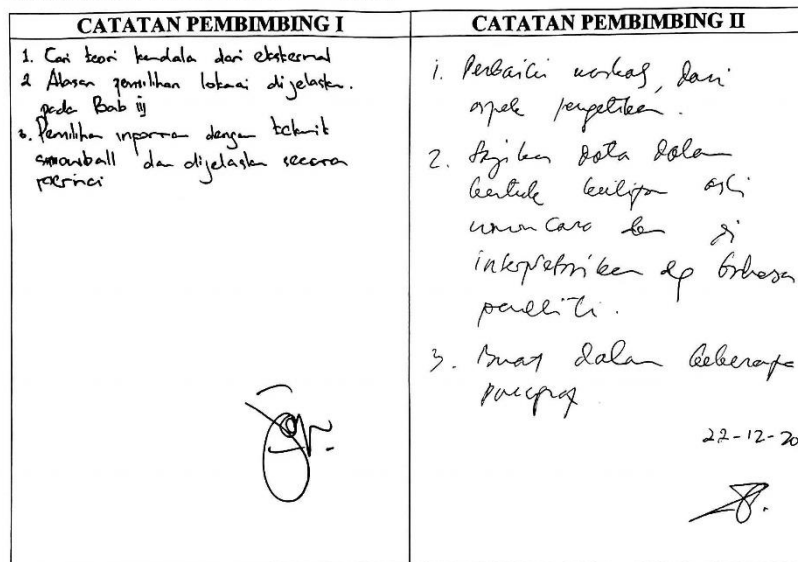 CATATAN PEMBIMBING I
1. Cari teori kendala dari eksternal
2 Alasan pemilihan lokasi dijelaskan.
pada Bab iij
3. Pemilihan inporman dengan teknik
snowball dan dijelaskan secara
perinci
CATATAN PEMBIMBING II
1. Perbaiki naskah, dari
aspek pengetikan.
2. Sajikan data dalam
bentuk kutipan asli
wawancara dan di
interpretasikan dg bahasa
peneliti.
3. Buat dalam beberapa
paragraf
22-12-20